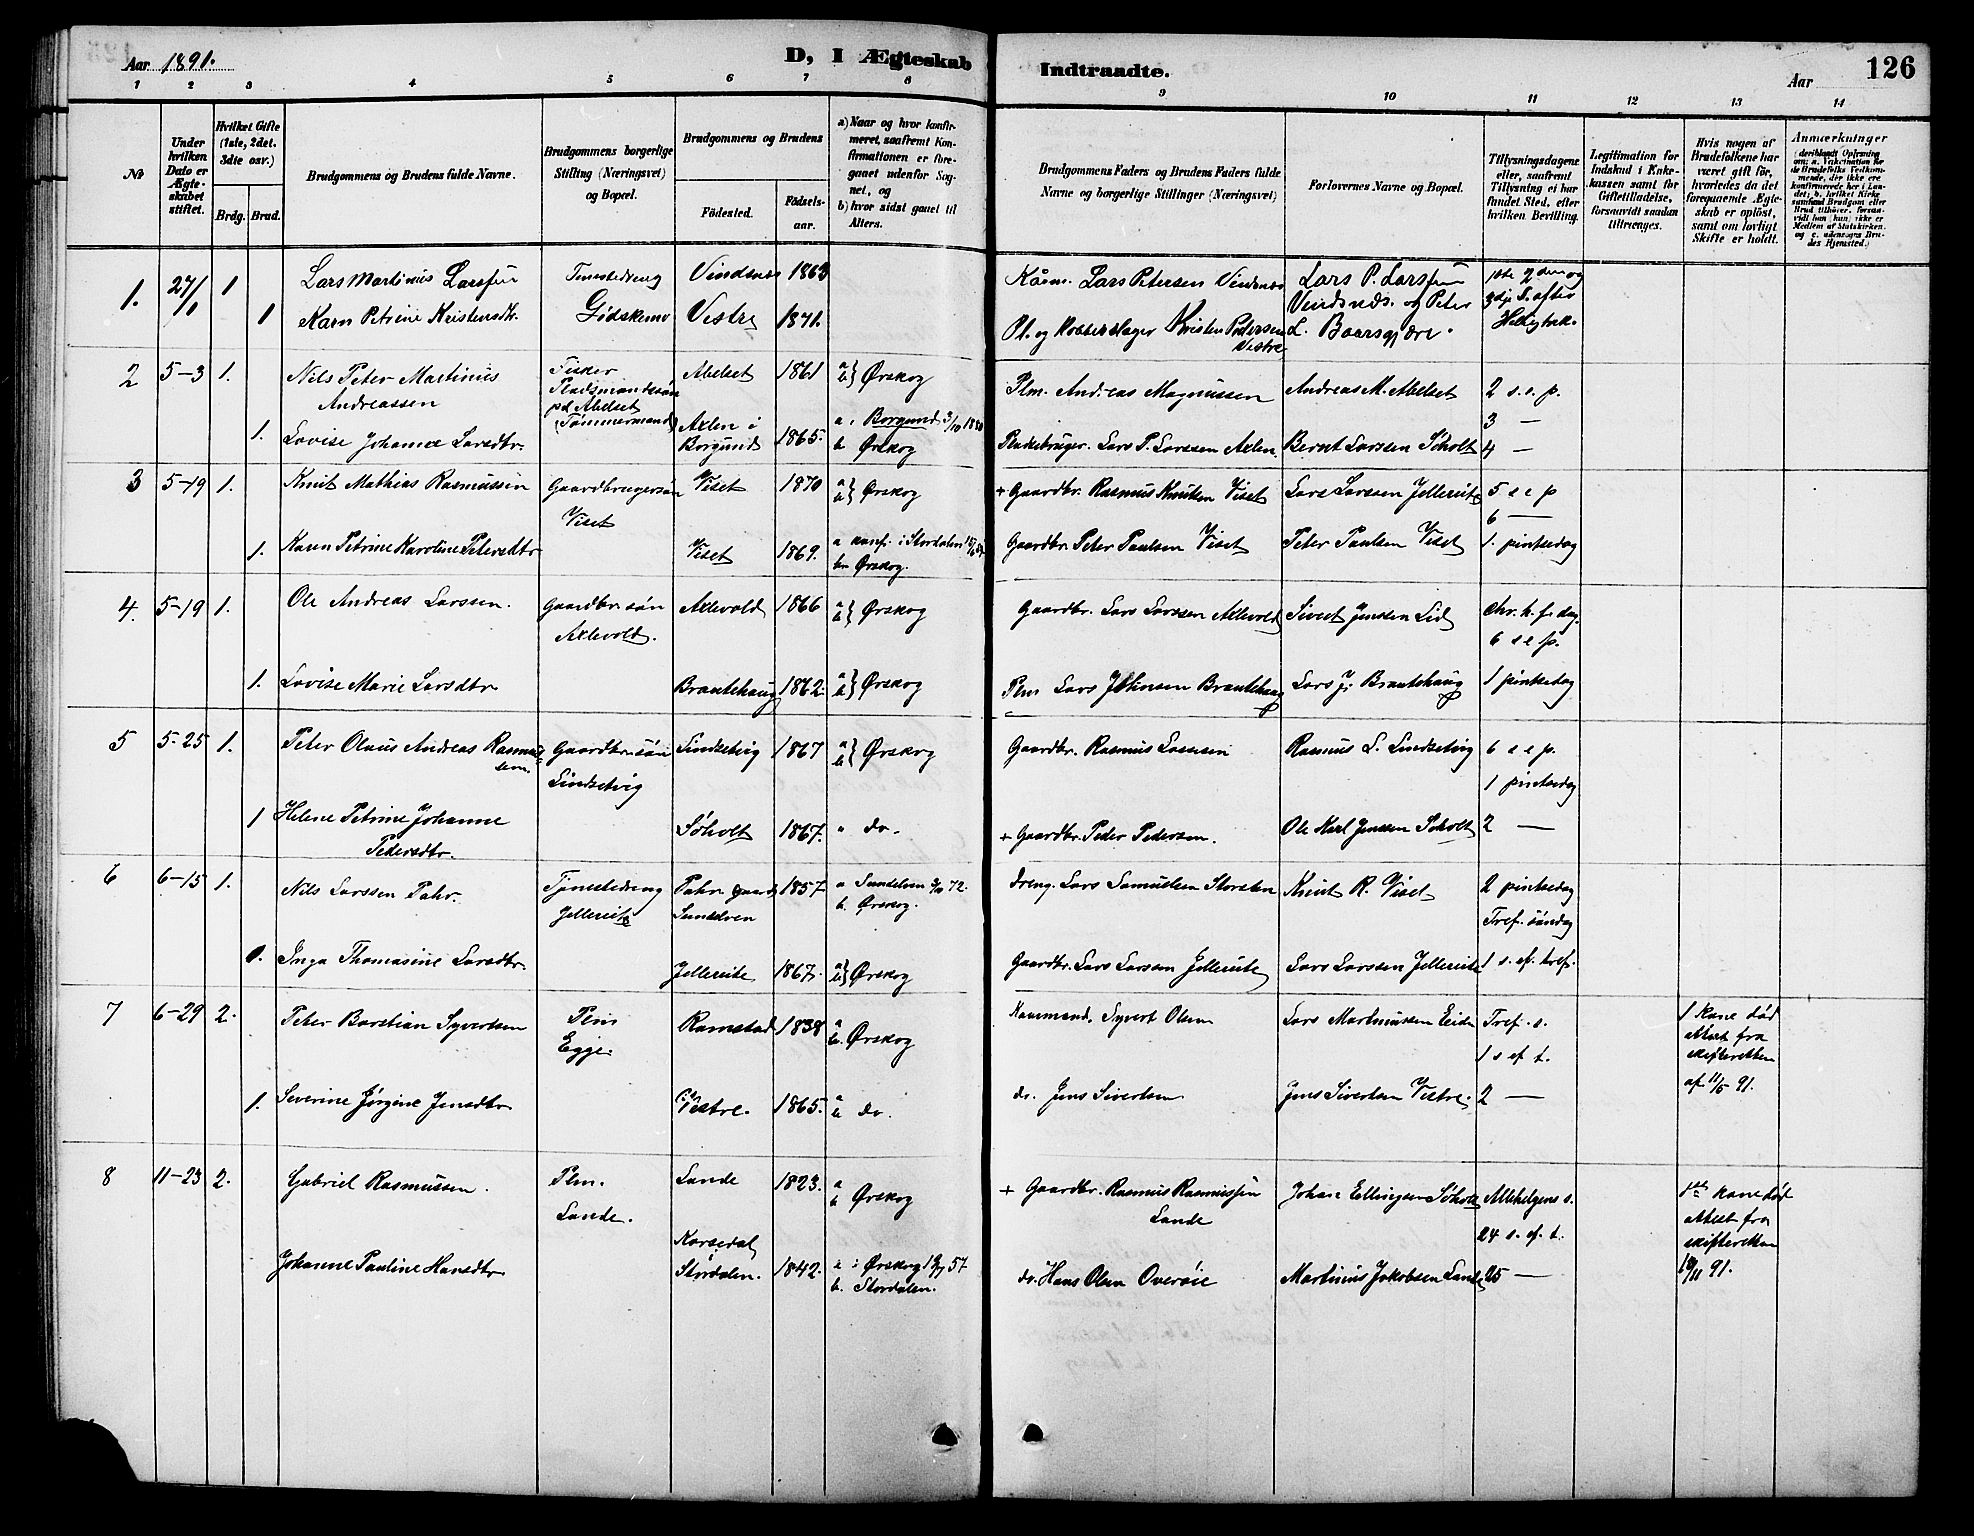 Aar 1891.
D, I Ægteskab Indtraadte.
Aar
126
1 2 3 4 5 6 7 8 9 10 11 12 13 14
No
Under hvilken Dato er Ægteskabet stiftet.
Hvilket Gifte (1ste, 2det. 3die osv.)
Brdg. Brud.
Brudgommens og Brudens fulde Navne.
Brudgommens borgerlige Stilling (Næringsvei) og Bopæl.
Brudgommens og Brudens
Födested.
Födselsaar.
a) Naar og hvor konfirmeret, saafremt Konfirmationen er foregaaet udenfor Sognet, og
b) hvor sidst gaaet til Alters.
Brudgommens Faders og Brudens Faders fulde Navne og borgerlige Stillinger (Næringsvei)
Forlovernes Navne og Bopæl.
Tillysningsdagene eller, saafremt Tillysning ei har fundet Sted, efter hvilken Bevilling.
Legitimation for Indskud i Enkekassen samt for Giftetilladelse, forsaavidt saadan tiltrænges.
Hvis nogen af Brudefolkene har været gift för, hvorledes da det foregaaende Ægteskab er oplöst, samt om lovligt Skifte er holdt.
Anmærkninger
1. 27/1 1 Lars Martinus Larssen Tjenestedreng Vindsnes 1863 Lars Petersen Vindsnes Lars P. Larssen 1ste 2den og
1 Karn Petrine Kristensdtr. Gidskemo Vestre 1871. Pl. og Kobberslager Kristen Pedersen Vestre Vindsnes. og Peter L. Baarsgjære. 3dje S. efter Helligtrek.
2 5-3 1. Nils Peter Martinus Andreassen Fisker Pladsmandssøn pd Abelset (Tømmermand) Abelset 1861 a b } Ørskog Plm. Andreas Magnussen Andreas M. Abelset 2 s. e. p.
3 —
1. Lovise Johanne Larsdtr. Axlen i Borgund 1865. a. Borgund 3/10 1880 b Ørskog Lars P. Larssen Axlen Bernt Larssen Søholt 4 —
3 5-19 1. Knut Mathias Rasmussen Gaardbrugersøn Viset Viset 1870 a b } Ørskog + Gaardbr. Rasmus Knutsen Viset Lars Larssen Jelleruite 5 s e p
6 —
1. Karen Petrine Karoline Petersdtr Viset 1869. a konf. i Stordalen b. Ørskog. Gaardbr. Peter Paulsen Viset Peter Paulsen Viset 1. pintsedag
4. 5-19 1. Ole Andreas Larssen. Gaardbr. søn Axlevold. Axlevold 1866 a b } Ørskog Gaardbr. Lars Larssen Axlevold Sivert Jenssen Lid Chr. h. f. dag.
6 s e p.
1. Lovise Marie Larsdtr Brautehaug 1862. a b } Ørskog Plm Lars Johnsen Brautehaug Lars J. Brautehaug 1 pintsedag
5 5-25 1. Peter Olaus Andreas Rasmussen. Gaardbr. søn Lindsetvig Lindsetvig 1867 a b } Ørskog Gaardbr. Rasmus Larssen Rasmus L. Lindsetvig 6 s e p.
1 pintsedag
1 Helene Petrine Johanne Pedersdtr. Søholt 1867. " do. + Gaardbr. Peder Pedersen. Ole Karl Jenssen Søholt 2 —
6 6-15 1. Nils Larssen Tahr. Tjenestedreng Jelleruite Tahr gaard Sunelven 1857. a Sunelven 72. b. Ørskog. dreng. Lars Samuelsen Knut R. Viset 2 pintsedag
Tref. söndag
1. Inga Thomasine Larsdtr. Jelleruite 1867. a b } Ørskog Gaardbr. Lars Larssen Jelleruite Lars Larssen Jelleruite 1 s. ef. tref.
7 6-29 2. Peter Bastian Syvertsen Plm Egge. Ramstad 1838 a b. Ørskog Kaarmand. Syvert Olsen Lars Martinussen Eide Tref. s. 1 kone död
1 s ef t. Attest fra skifteretten
1. Severine Jørgine Jensdtr. Vestre. 1865. a b do. do. Jens Sivertsen Jens Sivertsen Vestre. 2 — af 11/5 91.
8 11-23 2. Gabriel Rasmussen. Plm. Lande. Lande 1823. a b Ørskog + Gaardbr. Rasmus Rasmussen Lande Johan Ellingsen Søholt Allehelgens s. 1ste kone död
24 s. ef. t. Attest fra skifteretten
Johanne Pauline Hansdtr Korsedal Stordalen. 1842. a i Ørskog 57 b. Stordalen. do. Hans Olsen Overøie Martinus Jakobsen Lande 25 — 91.